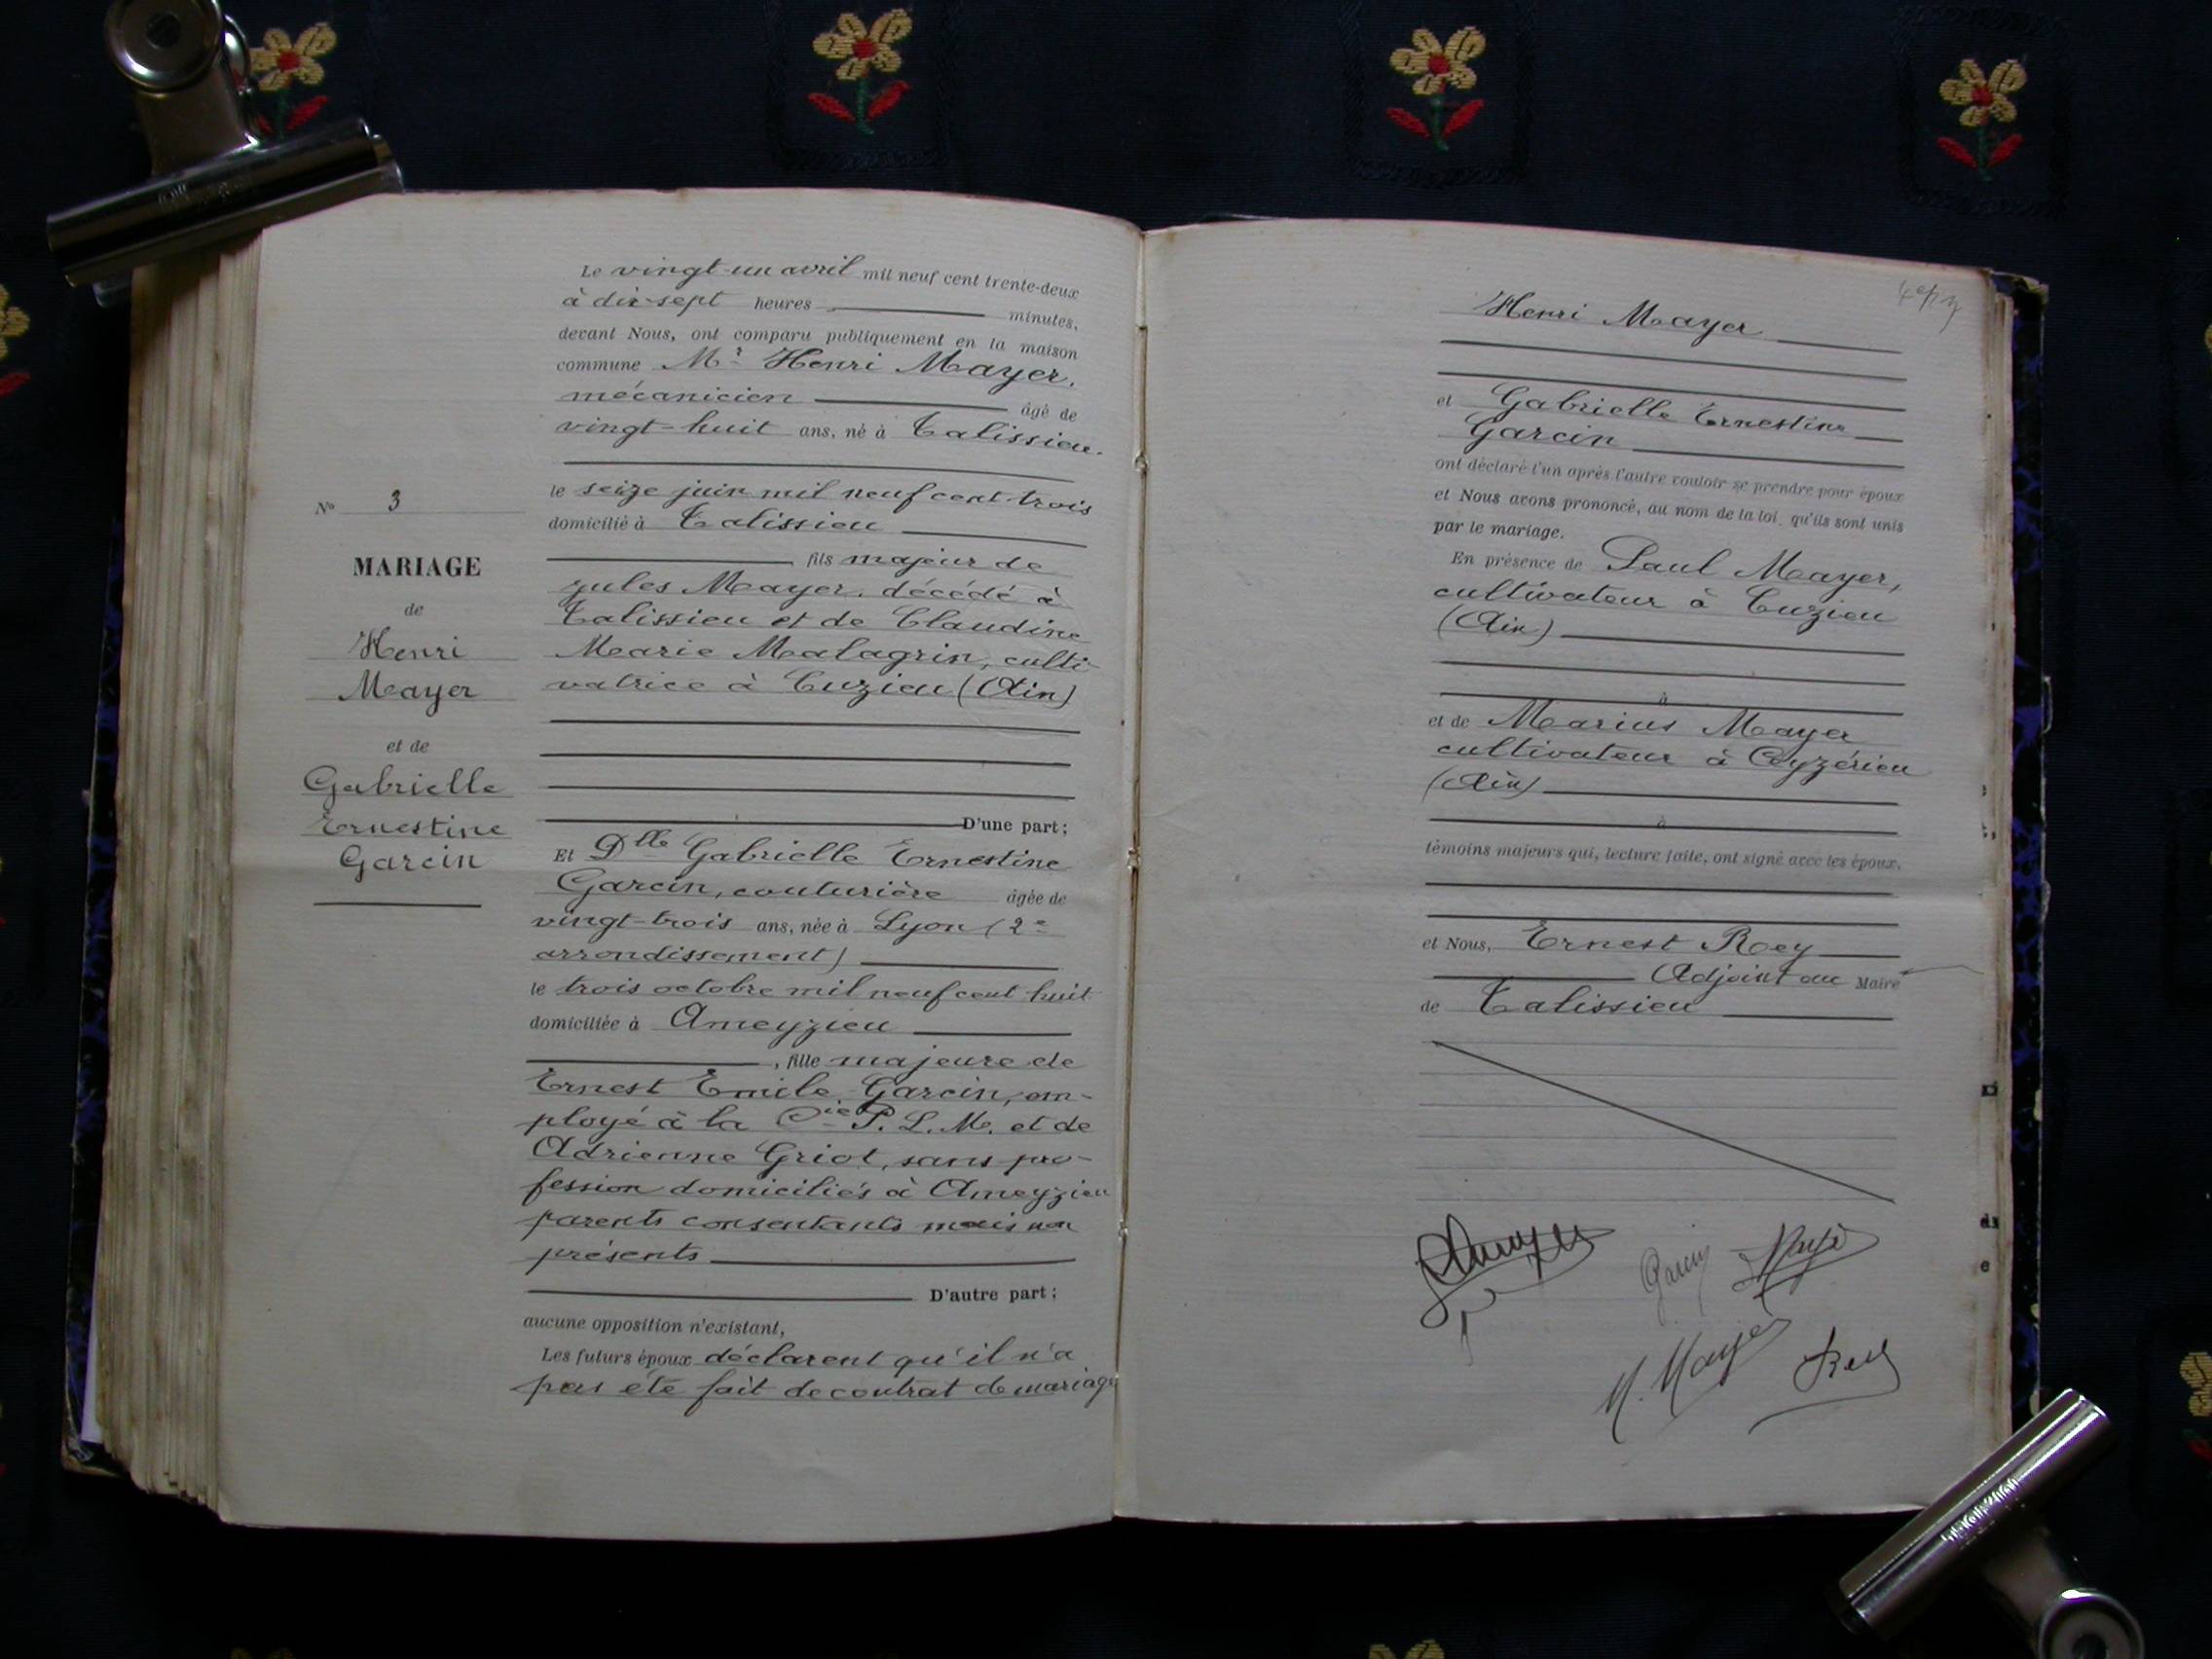 Le vingt-un avril mil neuf cent trente-deux
à dix-sept heures minutes,
devant Nous, ont comparu publiquement en la maison
commune Mr Henri Mayer.
mécanicien âgé de
vingt-huit ans, né à Talissieu.
le seize juin mil neuf cent trois
domicilié à Talissieu
fils majeur de
Jules Mayer, décédé à
Talissieu et de Claudine
Marie Malagrin, culti-
vatrice à Cuzieu (Ain)
D'une part;
Et Dlle Gabrielle Ernestine
Garcin, couturière âgée de
vingt-trois ans, née à Lyon (2e
arrondissement)
le trois octobre mil neuf cent huit
domiciliée à Ameyzieu
, fille majeure de
Ernest Emile Garcin, em-
ployé à la Cie P. L. M. et de
Adrienne Griot, sans pro-
fession domiciliés à Ameyzieu
parents consentants mais non
présents
D'autre part;
aucune opposition n'existant,
Les futurs époux déclarent qu'il n'a
pas été fait de contrat de mariage
No 3
MARIAGE
de
Henri
Mayer
et de
Gabrielle
Ernestine
Garcin
Henri Mayer
et Gabrielle Ernestine
Garcin
ont déclaré l'un après l'autre vouloir se prendre pour époux
et Nous avons prononcé, au nom de la loi, qu'ils sont unis
par le mariage.
En présence de Paul Mayer,
cultivateur à Cuzieu
(Ain)
à
et de Marius Mayer
cultivateur à Ceyzérieu
(Ain)
à
témoins majeurs qui, lecture faite, ont signé avec les époux.
et Nous, Ernest Rey
Adjoint au Maire
de Talissieu
Garcin
M. Mayer
Rey